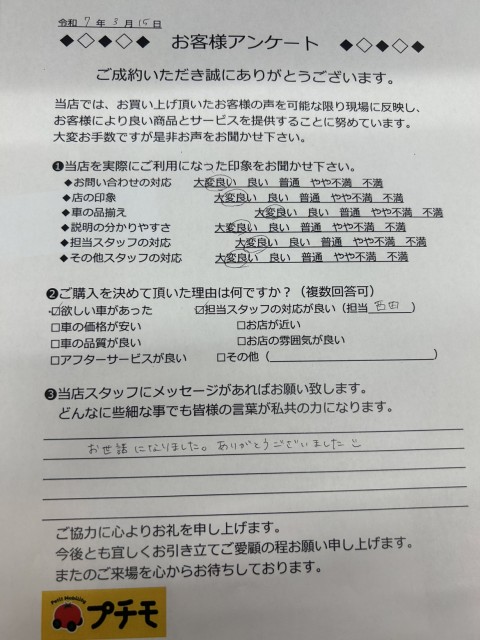 令和 7 年 3 月 15 日
◆◇◆◇◆ お客様アンケート ◆◇◆◇◆
ご成約いただき誠にありがとうございます。
当店では、お買い上げ頂いたお客様の声を可能な限り現場に反映し、
お客様により良い商品とサービスを提供することに努めています。
大変お手数ですが是非お声をお聞かせ下さい。
❶当店を実際にご利用になった印象をお聞かせ下さい。
◆お問い合わせの対応 大変良い 良い 普通 やや不満 不満
◆店の印象 大変良い 良い 普通 やや不満 不満
◆車の品揃え 大変良い 良い 普通 やや不満 不満
◆説明の分かりやすさ 大変良い 良い 普通 やや不満 不満
◆担当スタッフの対応 大変良い 良い 普通 やや不満 不満
◆その他スタッフの対応 大変良い 良い 普通 やや不満 不満
❷ご購入を決めて頂いた理由は何ですか？（複数回答可）
☑欲しい車があった ☑担当スタッフの対応が良い（担当 ）
□車の価格が安い □お店が近い
□車の品質が良い □お店の雰囲気が良い
□アフターサービスが良い □その他（ ）
❸当店スタッフにメッセージがあればお願い致します。
どんなに些細な事でも皆様の言葉が私共の力になります。
お世話になりました。ありがとうございました
ご協力に心よりお礼を申し上げます。
今後とも宜しくお引き立てご愛顧の程お願い申し上げます。
またのご来場を心からお待ちしております。
Petit Mobility
プチモ